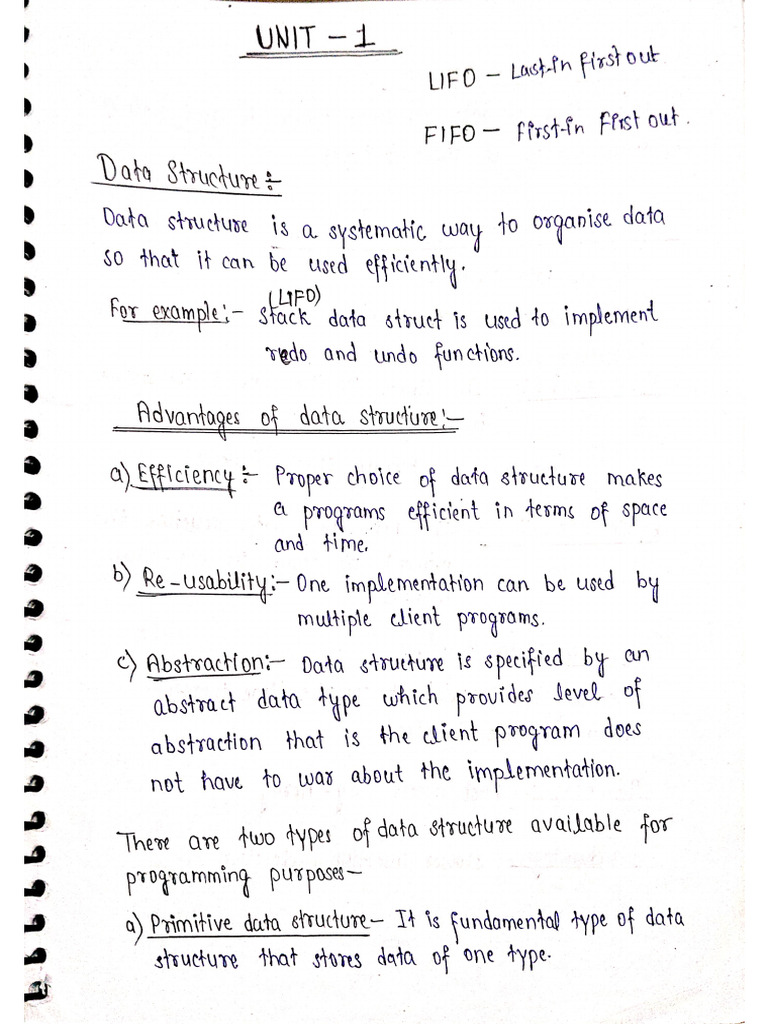 UNIT - 1
LIFO - Last-in first out
FIFO - first-in first out.
Data Structure :-
Data structure is a systematic way to organise data
so that it can be used efficiently.
(LIFO)
For example :- Stack data struct is used to implement
redo and undo functions.
Advantages of data structure :-
a) Efficiency :- Proper choice of data structure makes
a programs efficient in terms of space
and time.
b) Re-usability :- One implementation can be used by
multiple client programs.
c) Abstraction :- Data structure is specified by an
abstract data type which provides level of
abstraction that is the client program does
not have to war about the implementation.
There are two types of data structure available for
programming purposes-
a) Primitive data structure - It is fundamental type of data
structure that stores data of one type.